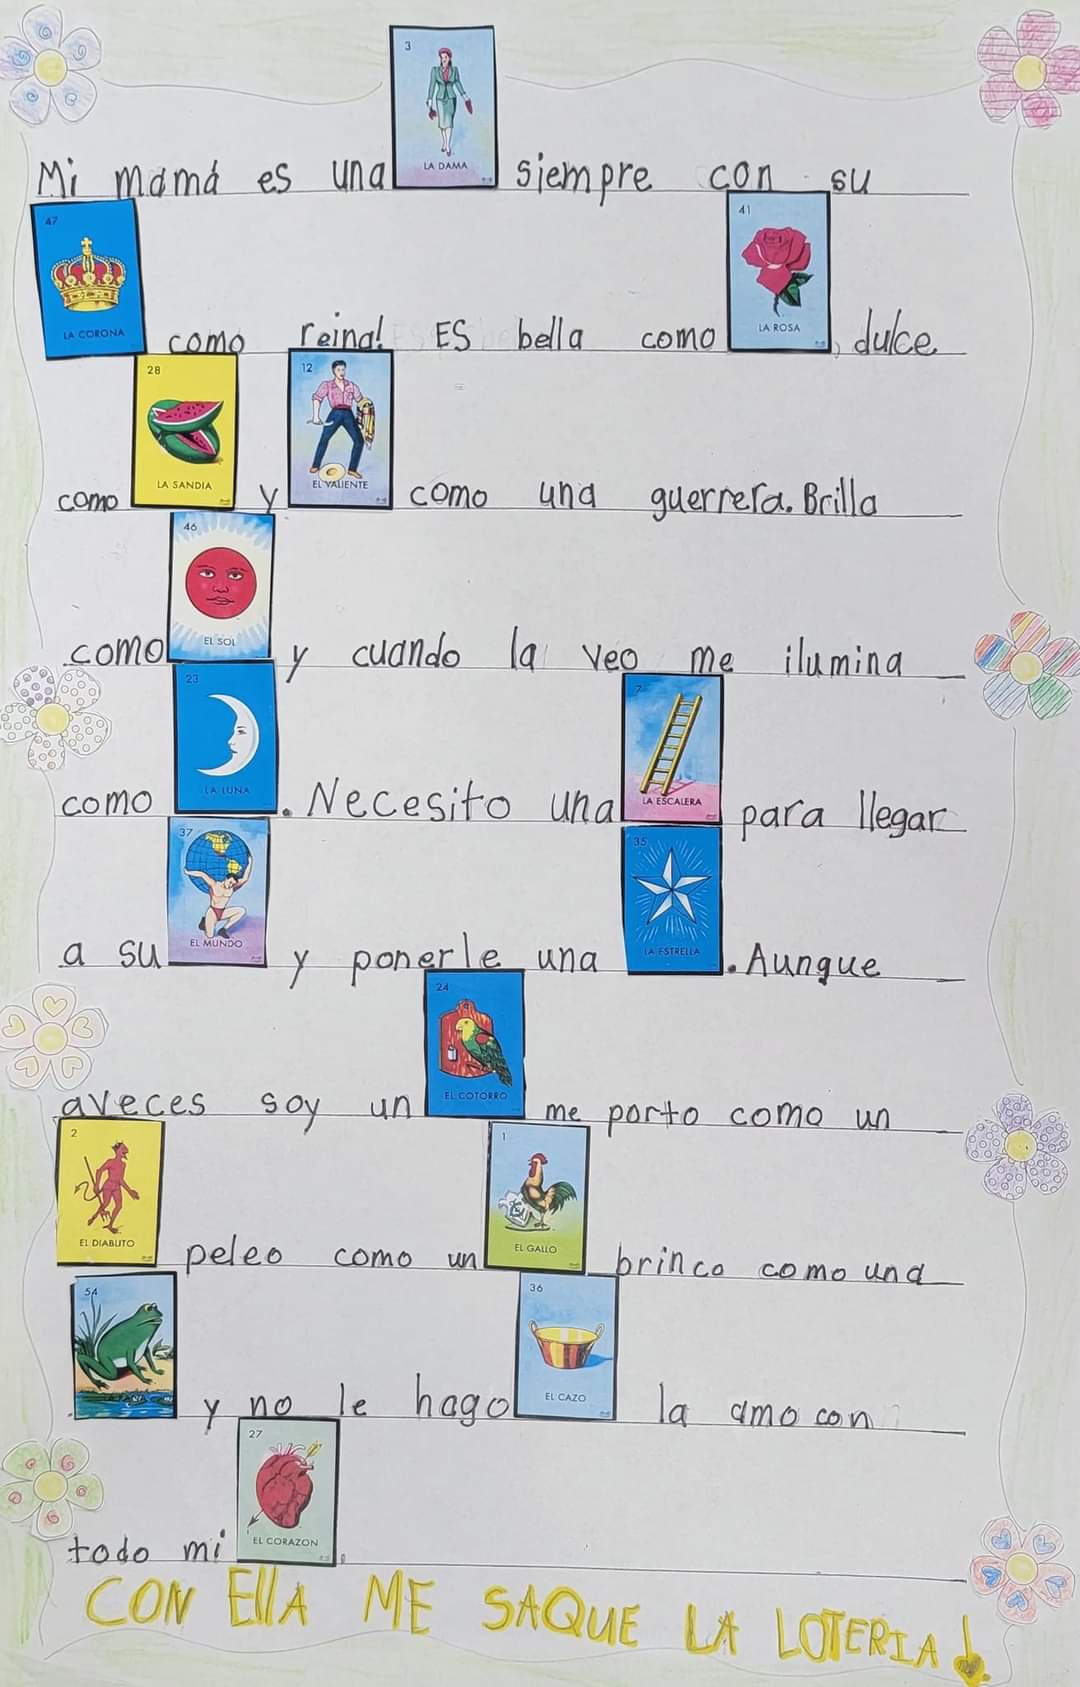 Mi mamá es una 3 LA DAMA siempre con su
47 LA CORONA como reina! ES bella como 41 LA ROSA, dulce
como 28 LA SANDIA y 12 EL VALIENTE como una guerrera. Brilla
como 46 EL SOL y cuando la veo me ilumina
como 23 LA LUNA. Necesito una 7 LA ESCALERA para llegar
a su 37 EL MUNDO y ponerle una 35 LA ESTRELLA. Aunque
aveces soy un 24 EL COTORRO me porto como un
2 EL DIABLITO peleo como un 1 EL GALLO brinco como una
54 y no le hago 36 EL CAZO la amo con
todo mi 27 EL CORAZON.
CON EllA ME SAQUE LA LOTERIA!